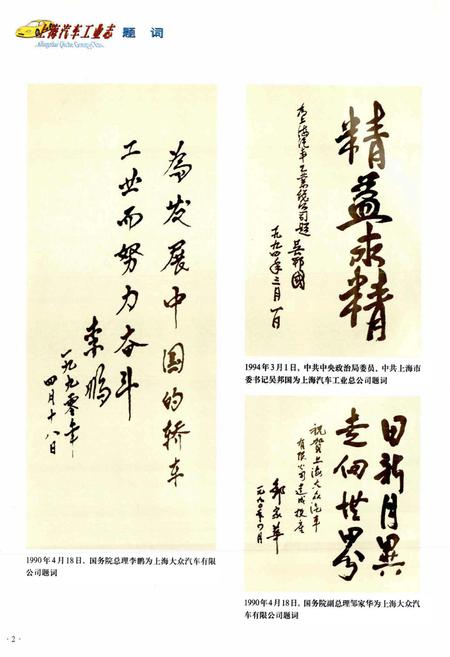 上海汽车工业志
Shanghai Qiche Gongye Zhi
题 词
为发展中国的轿车
工业而努力奋斗
李鹏
一九九零年
四月十八日
1990年4月18日，国务院总理李鹏为上海大众汽车有限
公司题词
精益求精
为上海汽车工业总公司题
吴邦國
一九九四年三月一日
1994年3月1日，中共中央政治局委员、中共上海市
委书记吴邦国为上海汽车工业总公司题词
日新月異
走向世界
祝贺上海大众汽车
有限公司建成投产
邹家华
一九九〇年四月
1990年4月18日，国务院副总理邹家华为上海大众汽
车有限公司题词
·2·